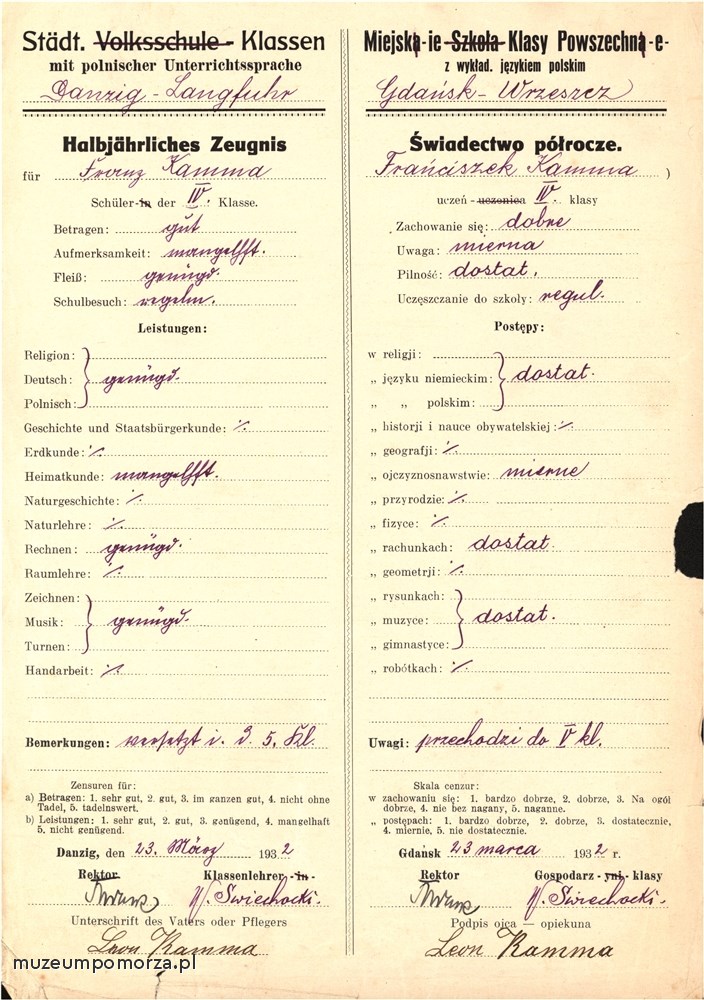 Städt. Volksschule - Klassen
mit polnischer Unterrichtssprache
Danzig - Langfuhr
Halbjährliches Zeugnis
für Franz Kamma
Schüler-in der IV. Klasse.
Betragen: gut
Aufmerksamkeit: mangelhft.
Fleiß: genügd.
Schulbesuch: regelm.
Leistungen:
Religion:
Deutsch: genügd.
Polnisch:
Geschichte und Staatsbürgerkunde: ·/.
Erdkunde: ·/.
Heimatkunde: mangelhft.
Naturgeschichte: ·/.
Naturlehre: ·/.
Rechnen: genügd.
Raumlehre: ·/.
Zeichnen:
Musik: genügd.
Turnen:
Handarbeit: ·/.
Bemerkungen: versetzt i. d. 5. Kl.
Zensuren für:
a) Betragen: 1. sehr gut, 2. gut, 3. im ganzen gut, 4. nicht ohne
Tadel, 5. tadelnswert.
b) Leistungen: 1. sehr gut, 2. gut, 3. genügend, 4. mangelhaft
5. nicht genügend.
Danzig, den 23. März 1932
Rektor Klassenlehrer - in -
Swiechocki.
Unterschrift des Vaters oder Pflegers
Leon Kamma
Miejska-ie Szkoła Klasy Powszechna-e-
z wykład. językiem polskim
Gdańsk - Wrzeszcz
Świadectwo półrocze.
Franciszek Kamma )
uczeń - uczenica IV. klasy
Zachowanie się: dobre
Uwaga: mierna
Pilność: dostat.
Uczęszczanie do szkoły: regul.
Postępy:
w religji:
„ języku niemieckim: dostat.
„ „ polskim:
„ historji i nauce obywatelskiej: ·/.
„ geografji: ·/.
„ ojczyznosnawstwie: mierne
„ przyrodzie: ·/.
„ fizyce: ·/.
„ rachunkach: dostat.
„ geometrji: ·/.
„ rysunkach:
„ muzyce: dostat.
„ gimnastyce:
„ robótkach: ·/.
Uwagi: przechodzi do V kl.
Skala cenzur:
w zachowaniu się: 1. bardzo dobrze, 2. dobrze, 3. Na ogół
dobrze, 4. nie bez nagany, 5. naganne.
„ postępach: 1. bardzo dobrze, 2. dobrze, 3. dostatecznie,
4. miernie, 5. nie dostatecznie.
Gdańsk 23 marca 1932 r.
Rektor Gospodarz - yni - klasy
Swiechocki.
Podpis ojca — opiekuna
Leon Kamma
muzeumpomorza.pl